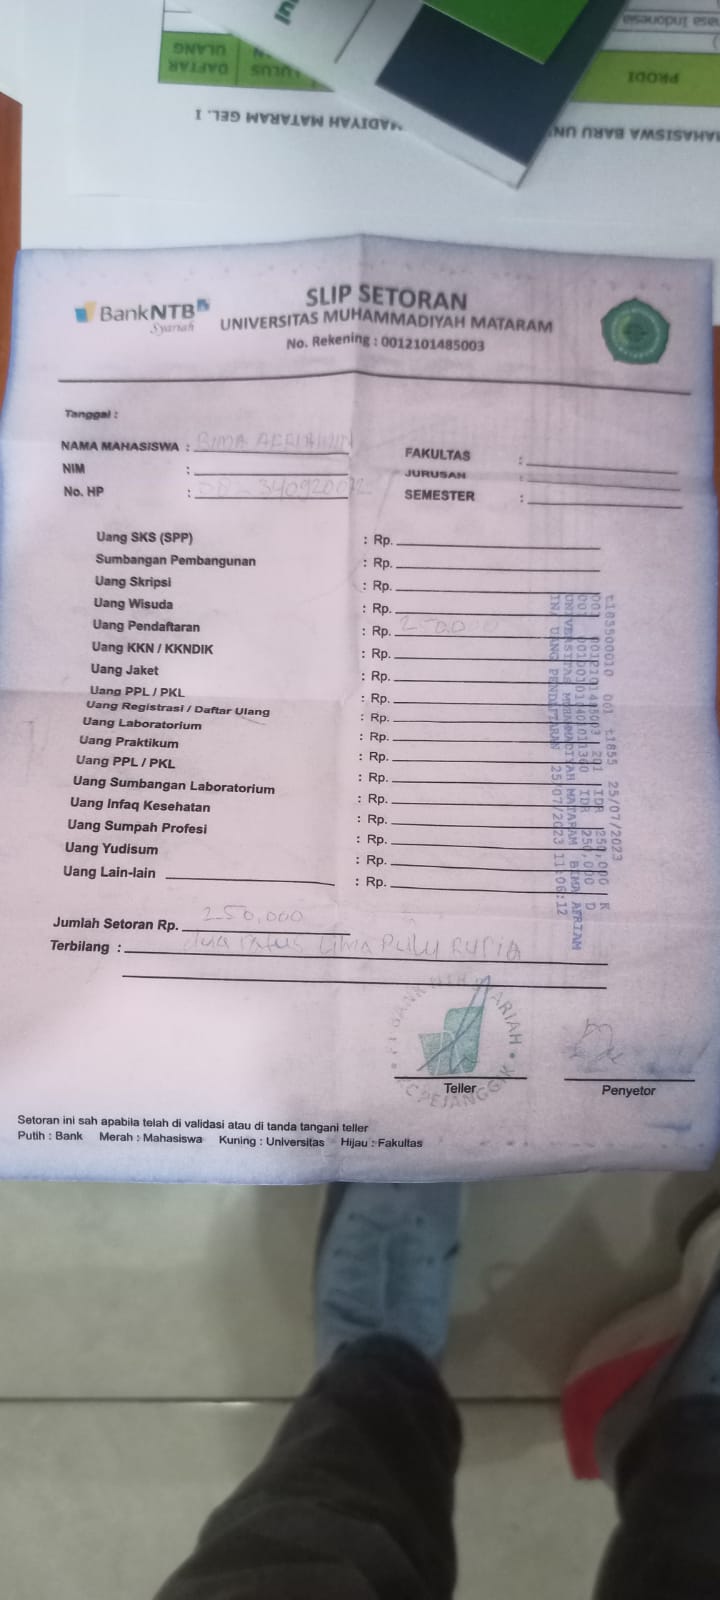 DAFTAR
ULANG
PRODI
MATARAM GEL. I
BankNTB
Syariah
SLIP SETORAN
UNIVERSITAS MUHAMMADIYAH MATARAM
No. Rekening : 0012101485003
Tanggal :
NAMA MAHASISWA : BIMA
NIM :
No. HP :
FAKULTAS :
JURUSAN :
SEMESTER :
Uang SKS (SPP) : Rp.
Sumbangan Pembangunan : Rp.
Uang Skripsi : Rp.
Uang Wisuda : Rp.
Uang Pendaftaran : Rp. 250.000
Uang KKN / KKNDIK : Rp.
Uang Jaket : Rp.
Uang PPL / PKL : Rp.
Uang Registrasi / Daftar Ulang : Rp.
Uang Laboratorium : Rp.
Uang Praktikum : Rp.
Uang PPL / PKL : Rp.
Uang Sumbangan Laboratorium : Rp.
Uang Infaq Kesehatan : Rp.
Uang Sumpah Profesi : Rp.
Uang Yudisum : Rp.
Uang Lain-lain : Rp.
t183500010 001 t1855 25/07/2023
001 0012101485003 201 IDR 250,000 K
IDR 250,000 D
UNIVERSITAS MUHAMMADIYAH MATARAM BIMA AFRIAM
UANG PENDAFTARAN 25/07/2023 11:06:12
Jumlah Setoran Rp. 250,000
Terbilang : dua ratus Lima Puluh rupia
PT BANK NTB SYARIAH
KC PEJANGGIK
Teller
Penyetor
Setoran ini sah apabila telah di validasi atau di tanda tangani teller
Putih : Bank Merah : Mahasiswa Kuning : Universitas Hijau : Fakultas